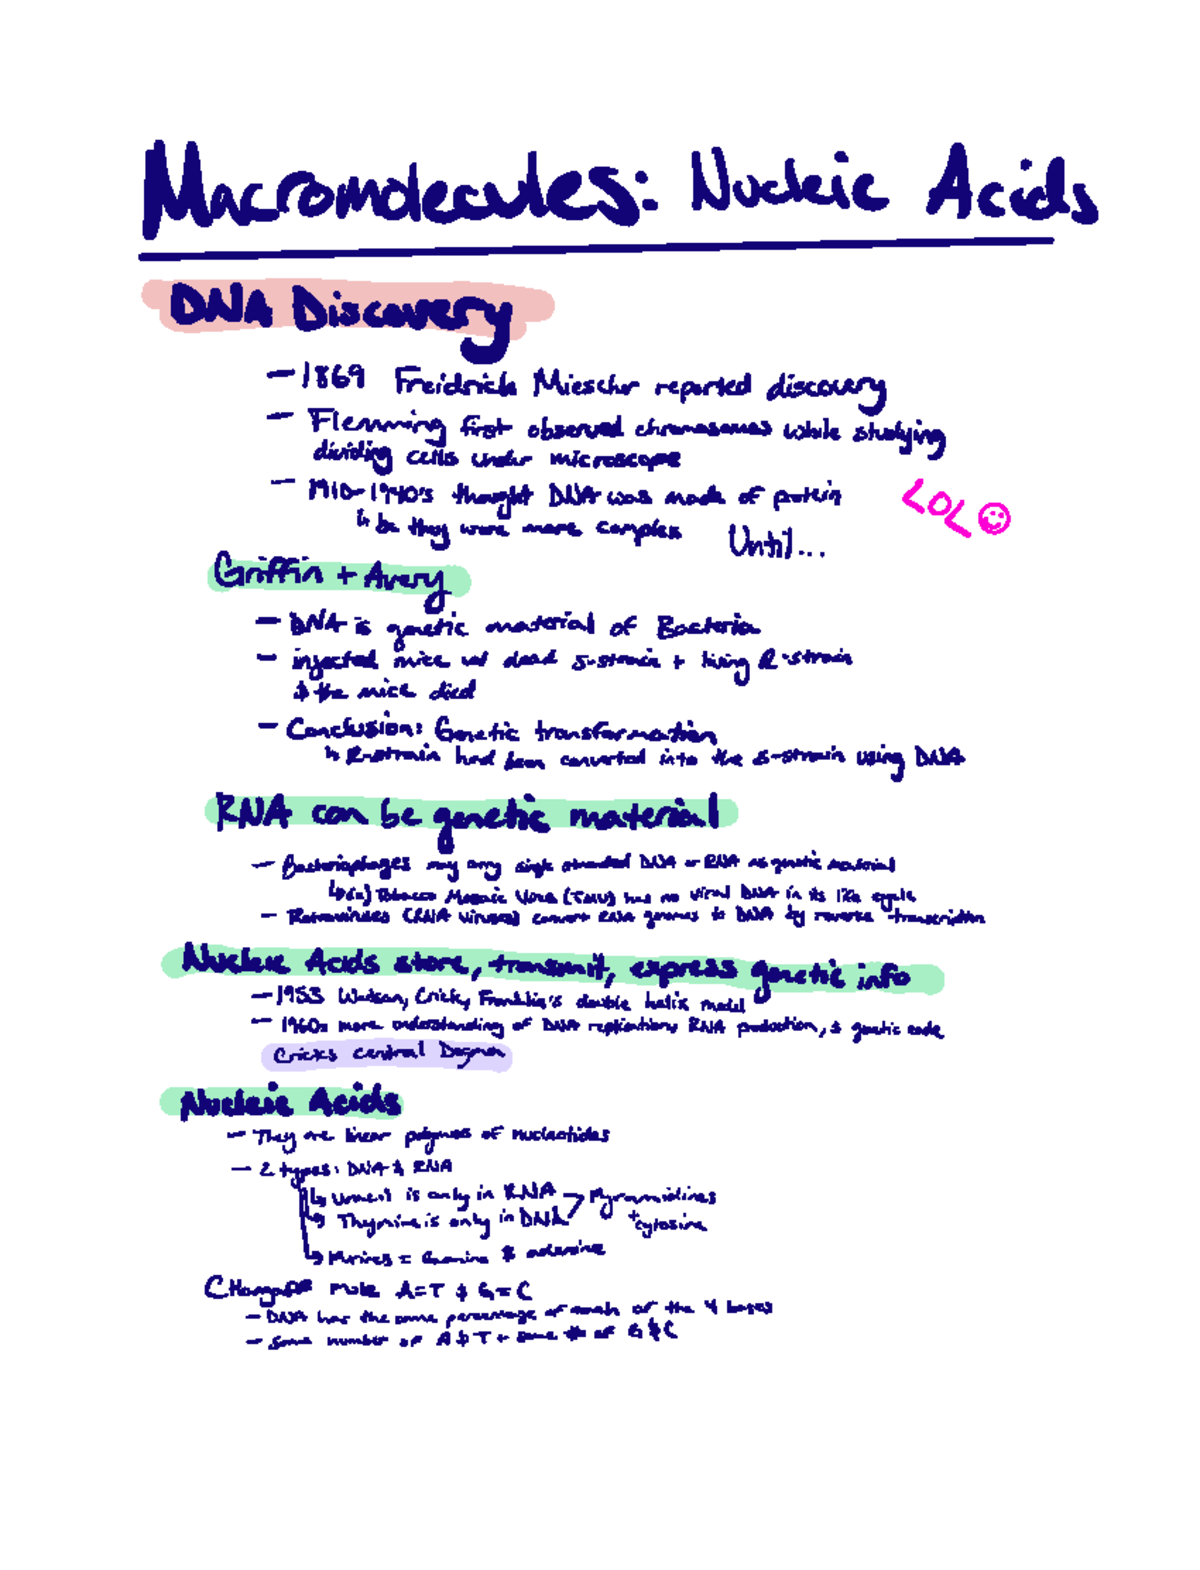 Macromolecules: Nucleic Acids
DNA Discovery
— 1869 Freidrick Mieschr reported discovery
— Flemming first observed chromosomes while studying
dividing cells under microscope
— MID-1940's thought DNA was made of protein
↳ bc they were more complex Until...
LOL
Griffin + Avery
— DNA is genetic material of Bacteria
— injected mice w/ dead S-strain + living R-strain
& the mice died
— Conclusion: Genetic transformation
↳ R-strain had been converted into the S-strain using DNA
RNA can be genetic material
— Bacteriophages may carry single stranded DNA or RNA as genetic material
↳ (ex) Tobacco Mosaic Virus (TMV) has no viral DNA in its life cycle
— Retroviruses (RNA viruses) convert RNA genomes to DNA by reverse transcription
Nucleic Acids store, transmit, express genetic info
— 1953 Watson, Crick, Franklin's double helix model
— 1960s more understanding of DNA replication, RNA production, & genetic code
Cricks central Dogma
Nucleic Acids
— They are linear polymers of nucleotides
— 2 types: DNA & RNA
↳ Uracil is only in RNA > Pyramidines
↳ Thymine is only in DNA + cytosine
↳ Purines = Guanine & adenine
Chargaff rule A=T & G=C
— DNA has the same percentage of each of the 4 bases
— Same number of A & T + same # of G & C